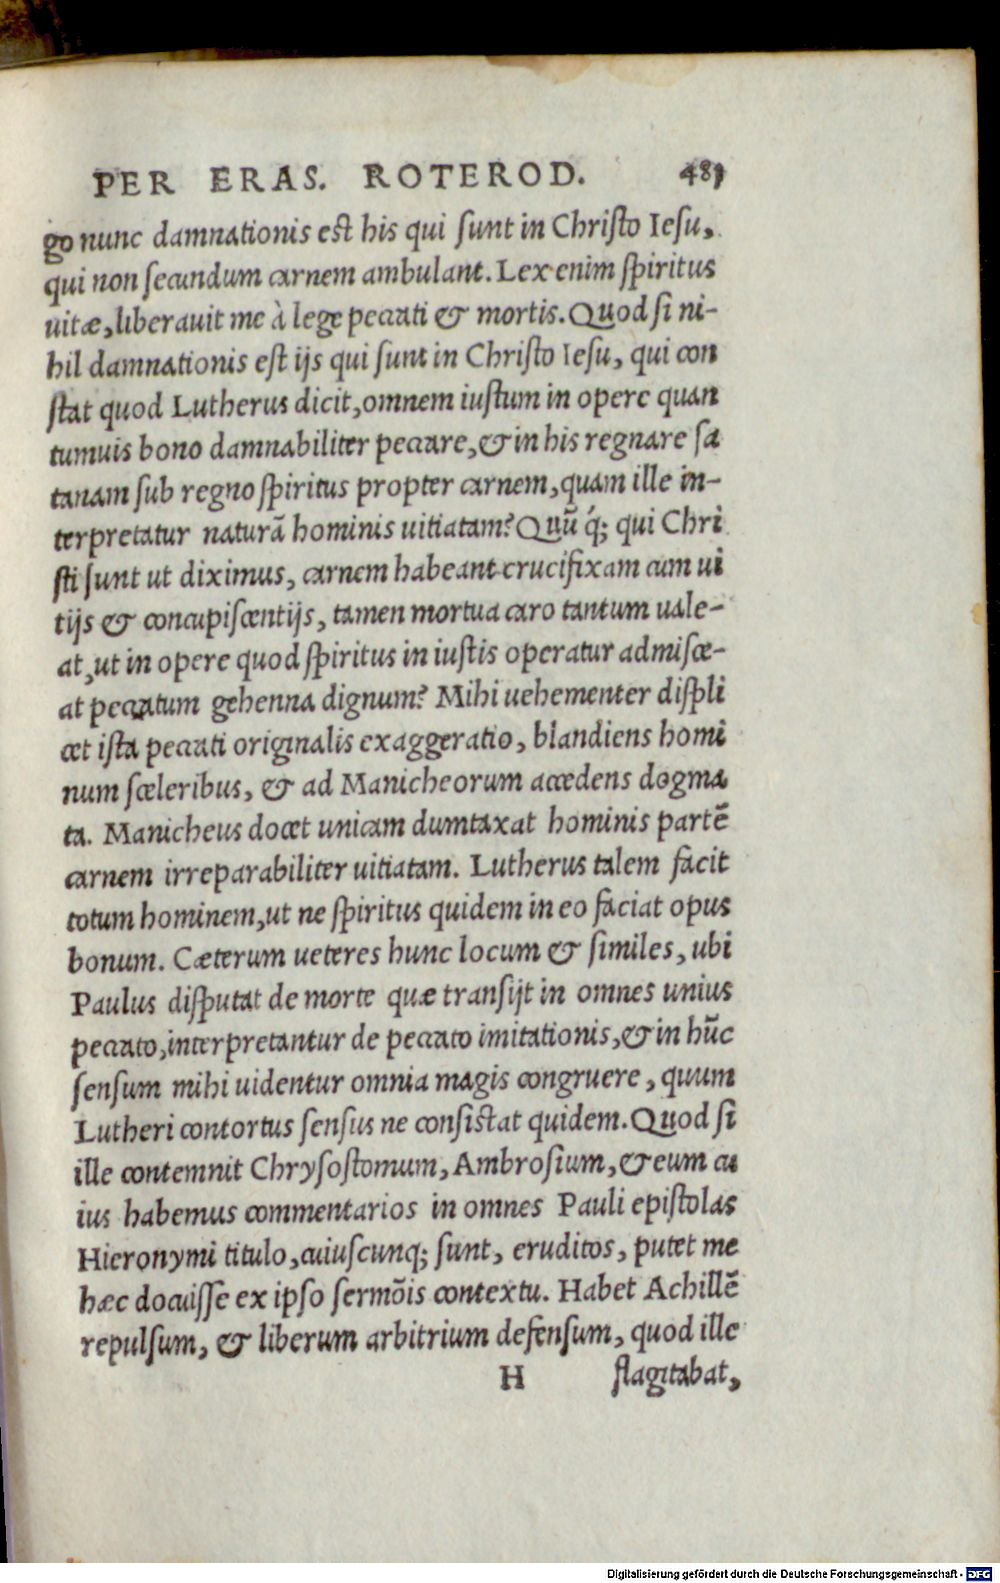 PER ERAS. ROTEROD. 481
go nunc damnationis est his qui sunt in Christo Iesu,
qui non secundum carnem ambulant. Lex enim spiritus
uitæ, liberauit me à lege peccati & mortis. Quod si ni-
hil damnationis est ijs qui sunt in Christo Iesu, qui con
stat quod Lutherus dicit, omnem iustum in opere quan
tumuis bono damnabiliter peccare, & in his regnare sa
tanam sub regno spiritus propter carnem, quam ille in-
terpretatur naturā hominis uitiatam? Quū q́; qui Chri
sti sunt ut diximus, carnem habeant crucifixam cum ui
tijs & concupiscentijs, tamen mortua caro tantum uale-
at, ut in opere quod spiritus in iustis operatur admisce-
at peccatum gehenna dignum? Mihi uehementer displi
cet ista peccati originalis exaggeratio, blandiens homi
num sceleribus, & ad Manicheorum accedens dogma
ta. Manicheus docet unicam dumtaxat hominis partē
carnem irreparabiliter uitiatam. Lutherus talem facit
totum hominem, ut ne spiritus quidem in eo faciat opus
bonum. Cæterum ueteres hunc locum & similes, ubi
Paulus disputat de morte quæ transijt in omnes unius
peccato, interpretantur de peccato imitationis, & in hūc
sensum mihi uidentur omnia magis congruere, quum
Lutheri contortus sensus ne consistat quidem. Quod si
ille contemnit Chrysostomum, Ambrosium, & eum cu
ius habemus commentarios in omnes Pauli epistolas
Hieronymi titulo, cuiuscunq; sunt, eruditos, putet me
hæc docuisse ex ipso sermōis contextu. Habet Achillē
repulsum, & liberum arbitrium defensum, quod ille
H flagitabat,
Digitalisierung gefördert durch die Deutsche Forschungsgemeinschaft - DFG